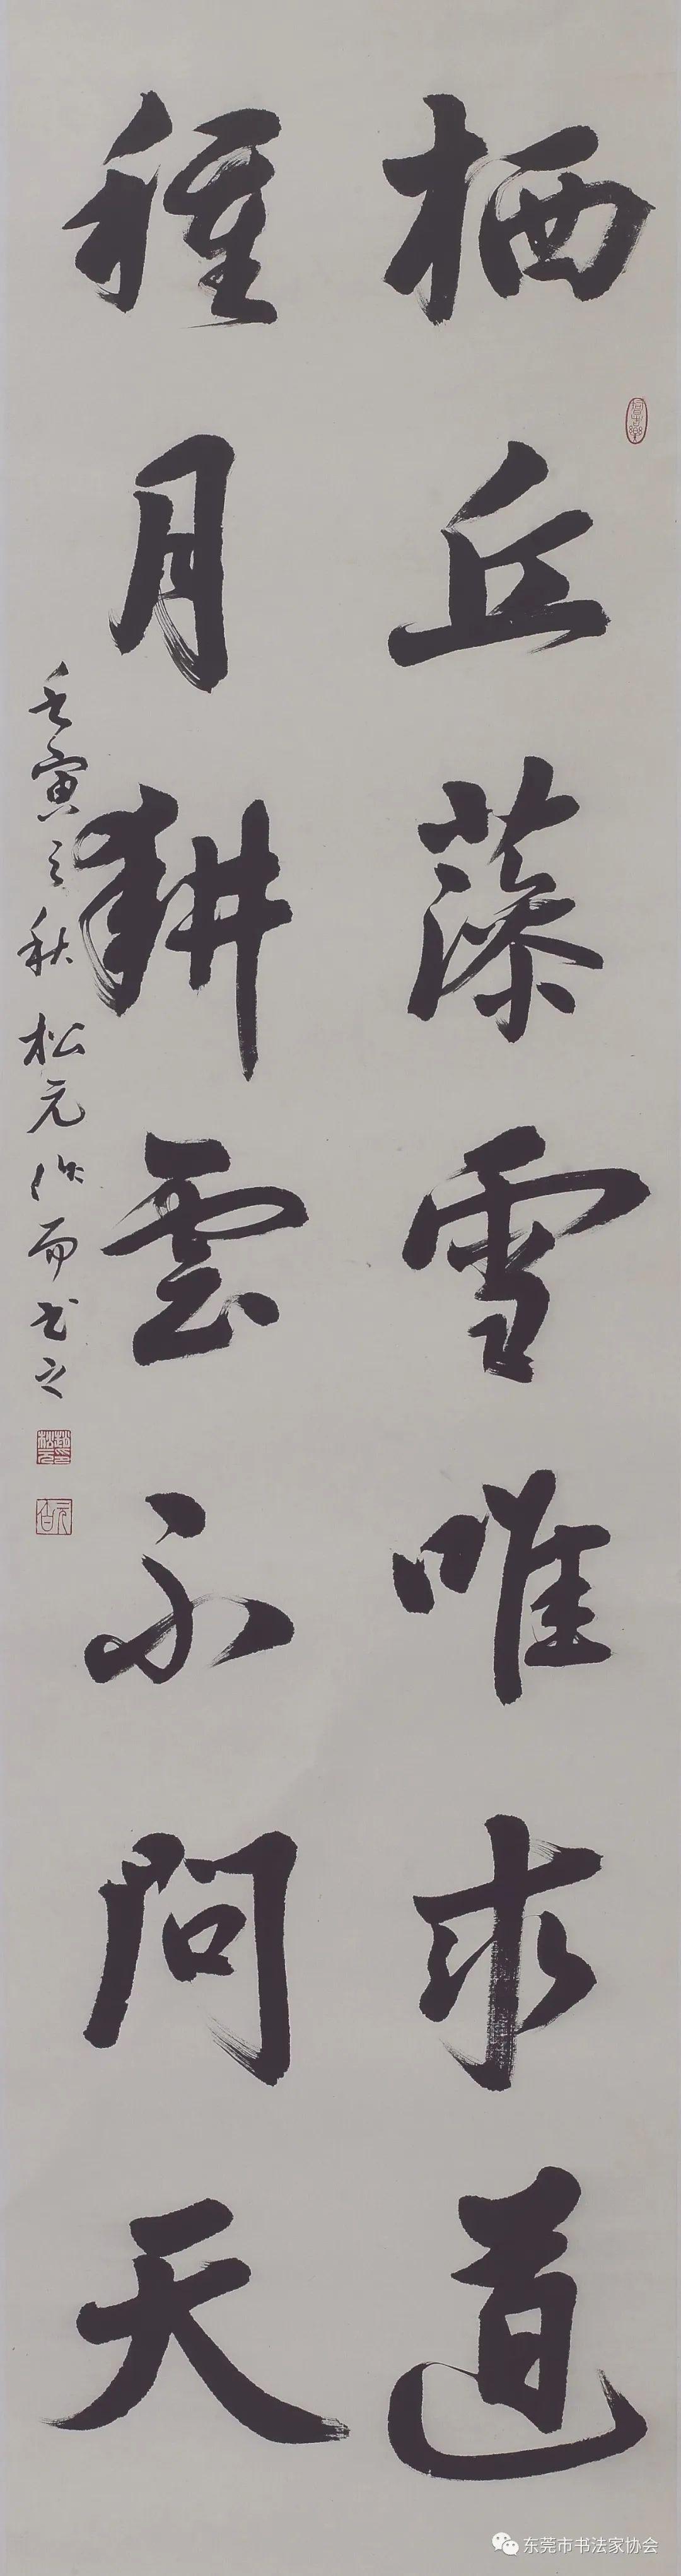 栖丘藻雪唯求道
種月耕雲不问天
壬寅之秋松元作而书之
东莞市书法家协会